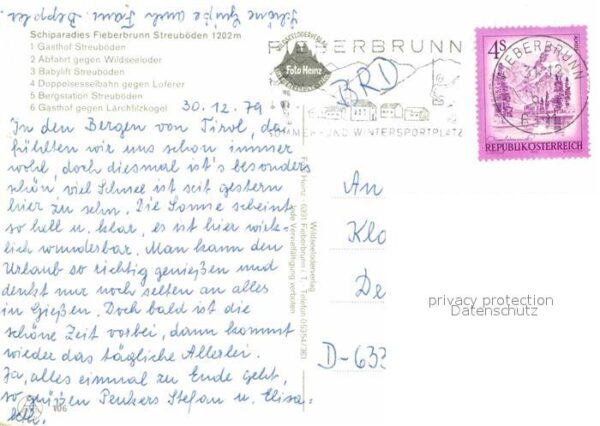 Schöne Grüße auch Fam. Beppler
Schiparadies Fieberbrunn Streuböden 1202m
1 Gasthof Streuböden
2 Abfahrt gegen Wildseeloder
3 Babylift Streuböden
4 Doppelsesselbahn gegen Loferer
5 Bergstation Streuböden
6 Gasthof gegen Lärchfilzkogel
30.12.79
In den Bergen von Tirol, da
fühlten wir uns schon immer
wohl, doch diesmal ist's besonders
schön, viel Schnee ist seit gestern
hier zu sehn. Die Sonne scheint
so hell u. klar, es ist hier wirk-
lich wunderbar. Man kann den
Urlaub so richtig genießen und
denkt nur noch selten an alles
in Gießen. Doch bald ist die
schöne Zeit vorbei, dann kommt
wieder das tägliche Allerlei.
Ja, alles einmal zu Ende geht,
so grüßen Penkers Stefan u. Elisa-
beth.
106
Wildseeloderverlag
Foto Heinz · 6391 Fieberbrunn i. T. · Telefon 05354/
Jede Vervielfältigung verboten
WILDSEELODERVERLAG
Foto Heinz
FIEBERBRUNN
BRD
SOMMER- UND WINTERSPORTPLATZ
4S
REPUBLIK ÖSTERREICH
FIEBERBRUNN
An
Klo
De
D-633
privacy protection
Datenschutz